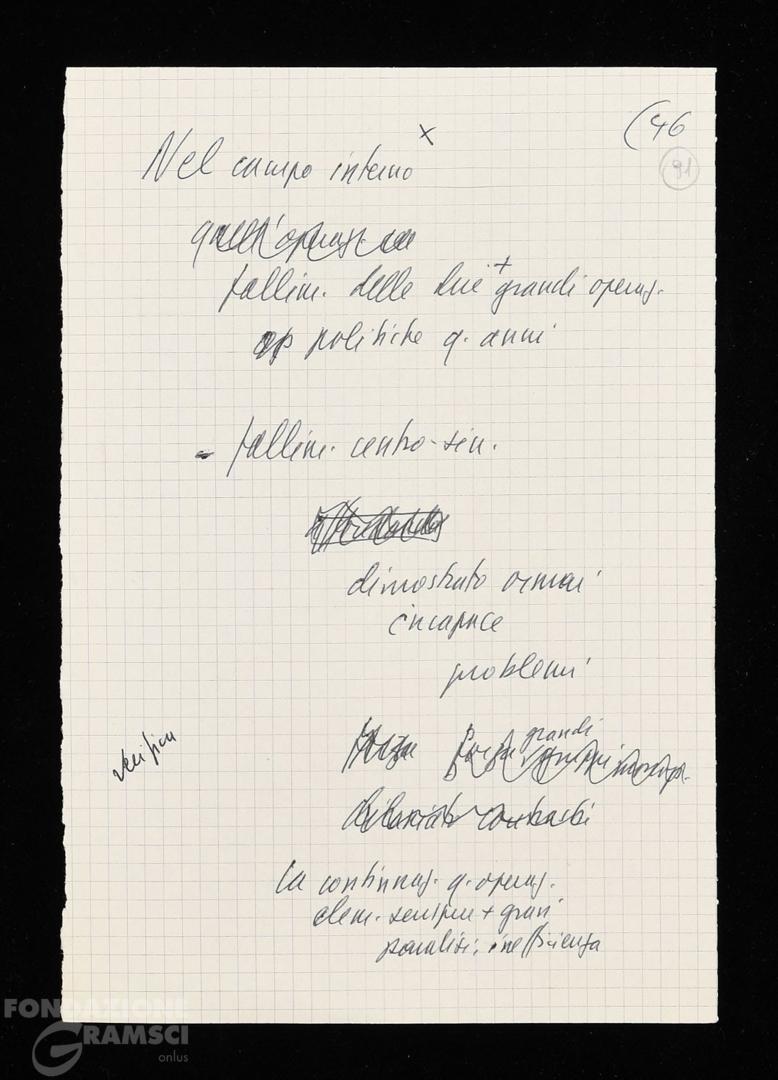 (46
91
x
Nel campo interno
quell'operaz.
+
fallim. delle due grandi operaz.
op politiche q. anni
- fallim. centro-sin.
dimostrato ormai
incapace
problemi
verifica
forza grandi
dilaniato contrasti
la continuaz. q. operaz.
elem. sempre + gravi
paralisi, inefficienza
FONDAZIONE
GRAMSCI
onlus